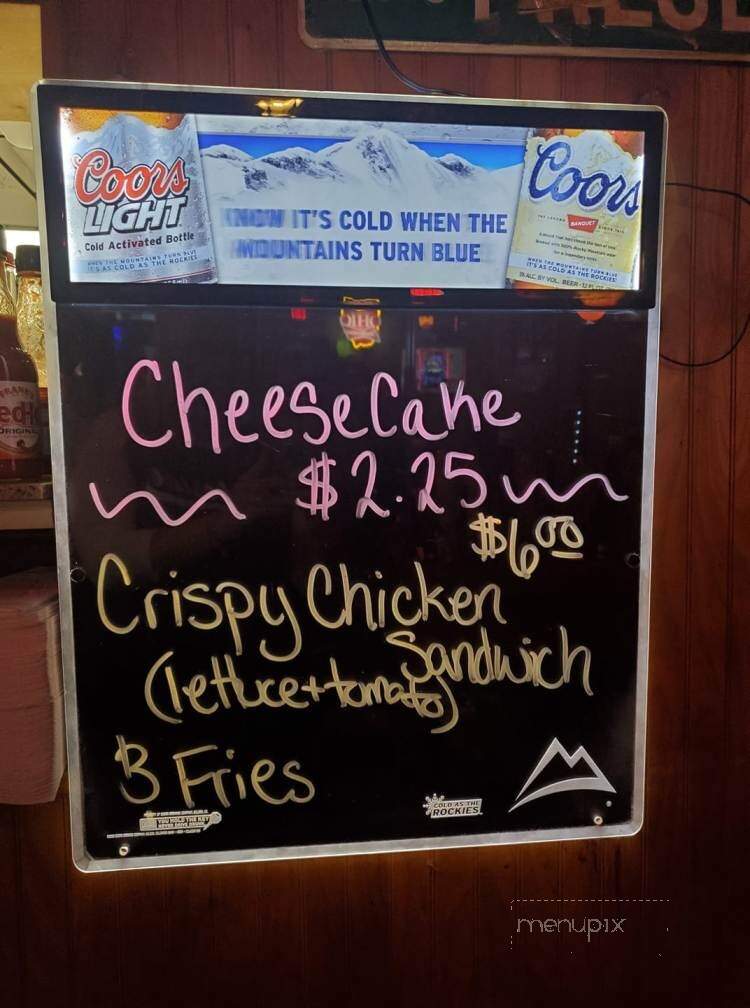 Coors
LIGHT
Cold Activated Bottle
WHEN THE MOUNTAINS TURN BLUE
IT'S AS COLD AS THE ROCKIES
KNOW IT'S COLD WHEN THE
MOUNTAINS TURN BLUE
Coors
BANQUET
WHEN THE MOUNTAINS TURN BLUE
IT'S AS COLD AS THE ROCKIES
OHIO
CheeseCake
$2.25
$6.00
Crispy Chicken
Sandwich
(lettuce + tomato)
B Fries
COLD AS THE
ROCKIES
menupix